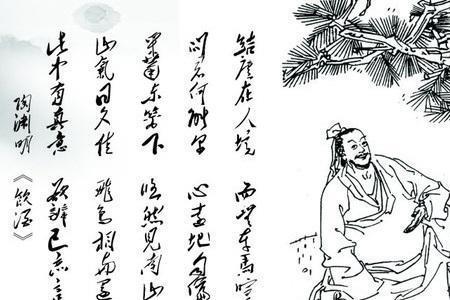 结庐在人境 而无车马喧
问君何能尔 心远地自偏
采菊东篱下 悠然见南山
山气日夕佳 飞鸟相与还
此中有真意 欲辨已忘言
陶渊明《饮酒》